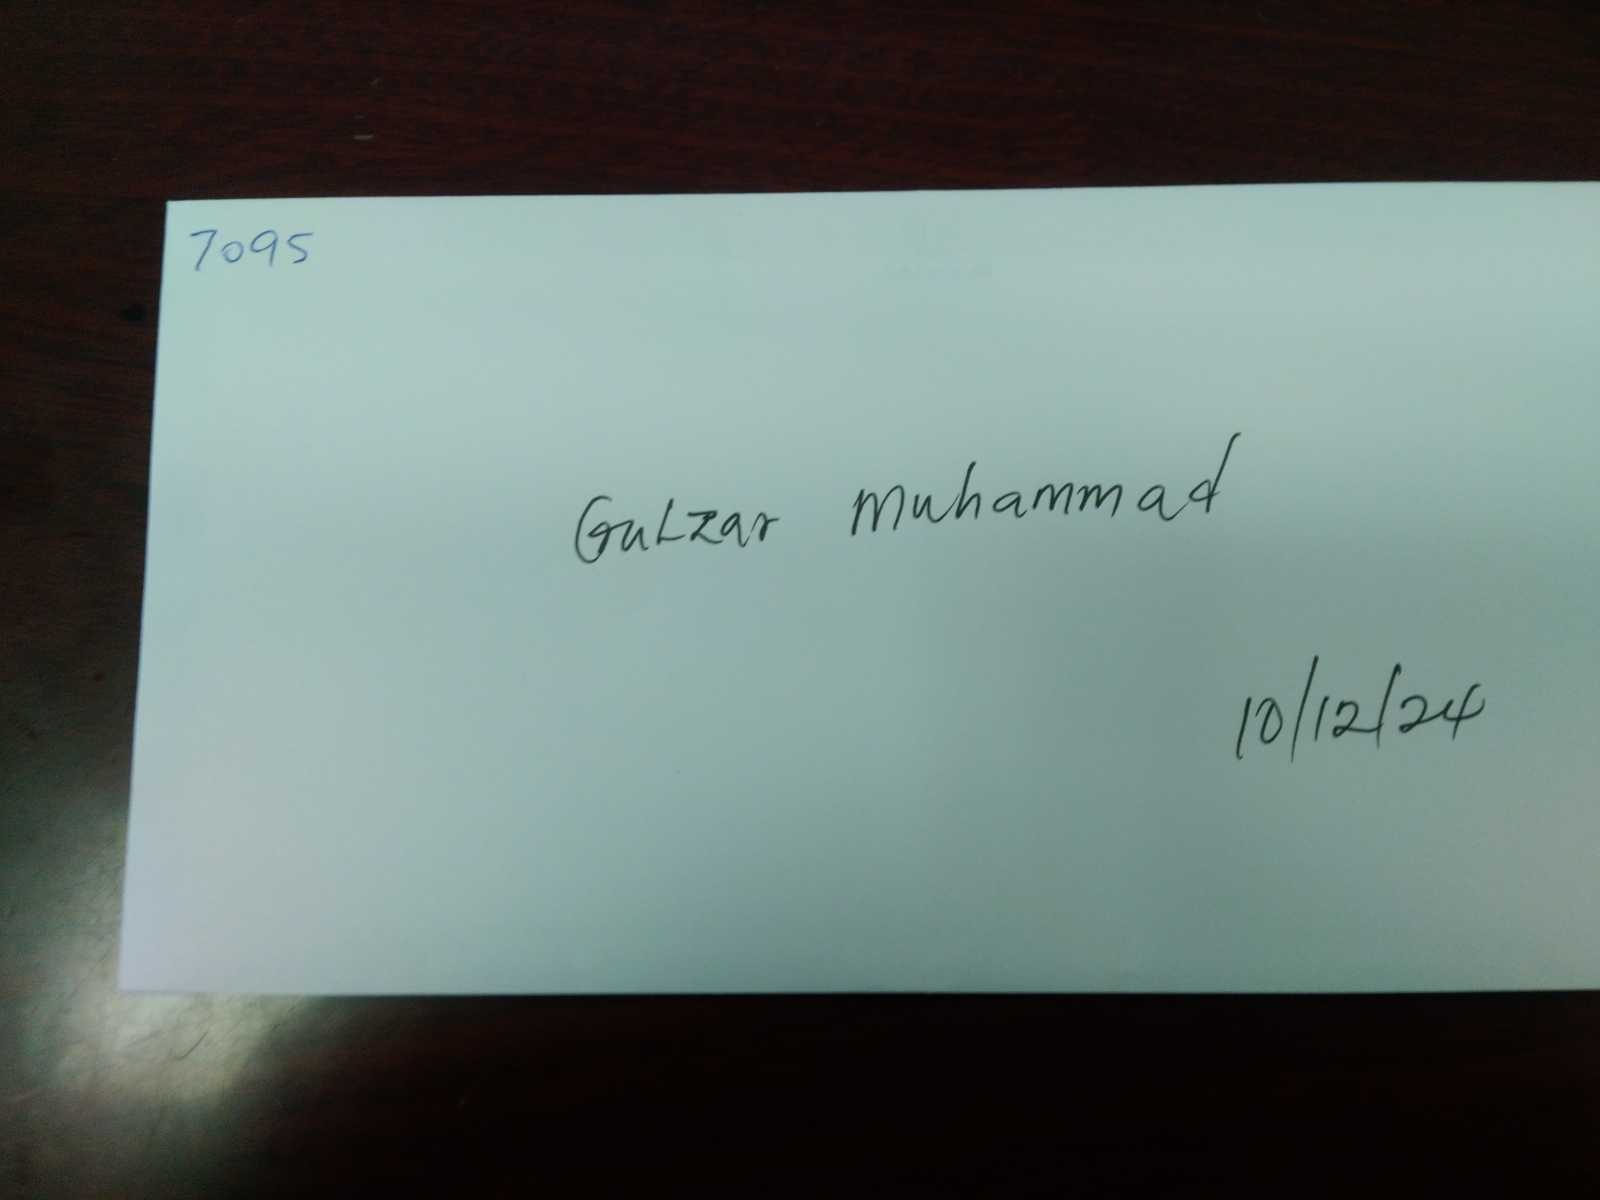 7095
Gulzar Muhammad
10/12/24